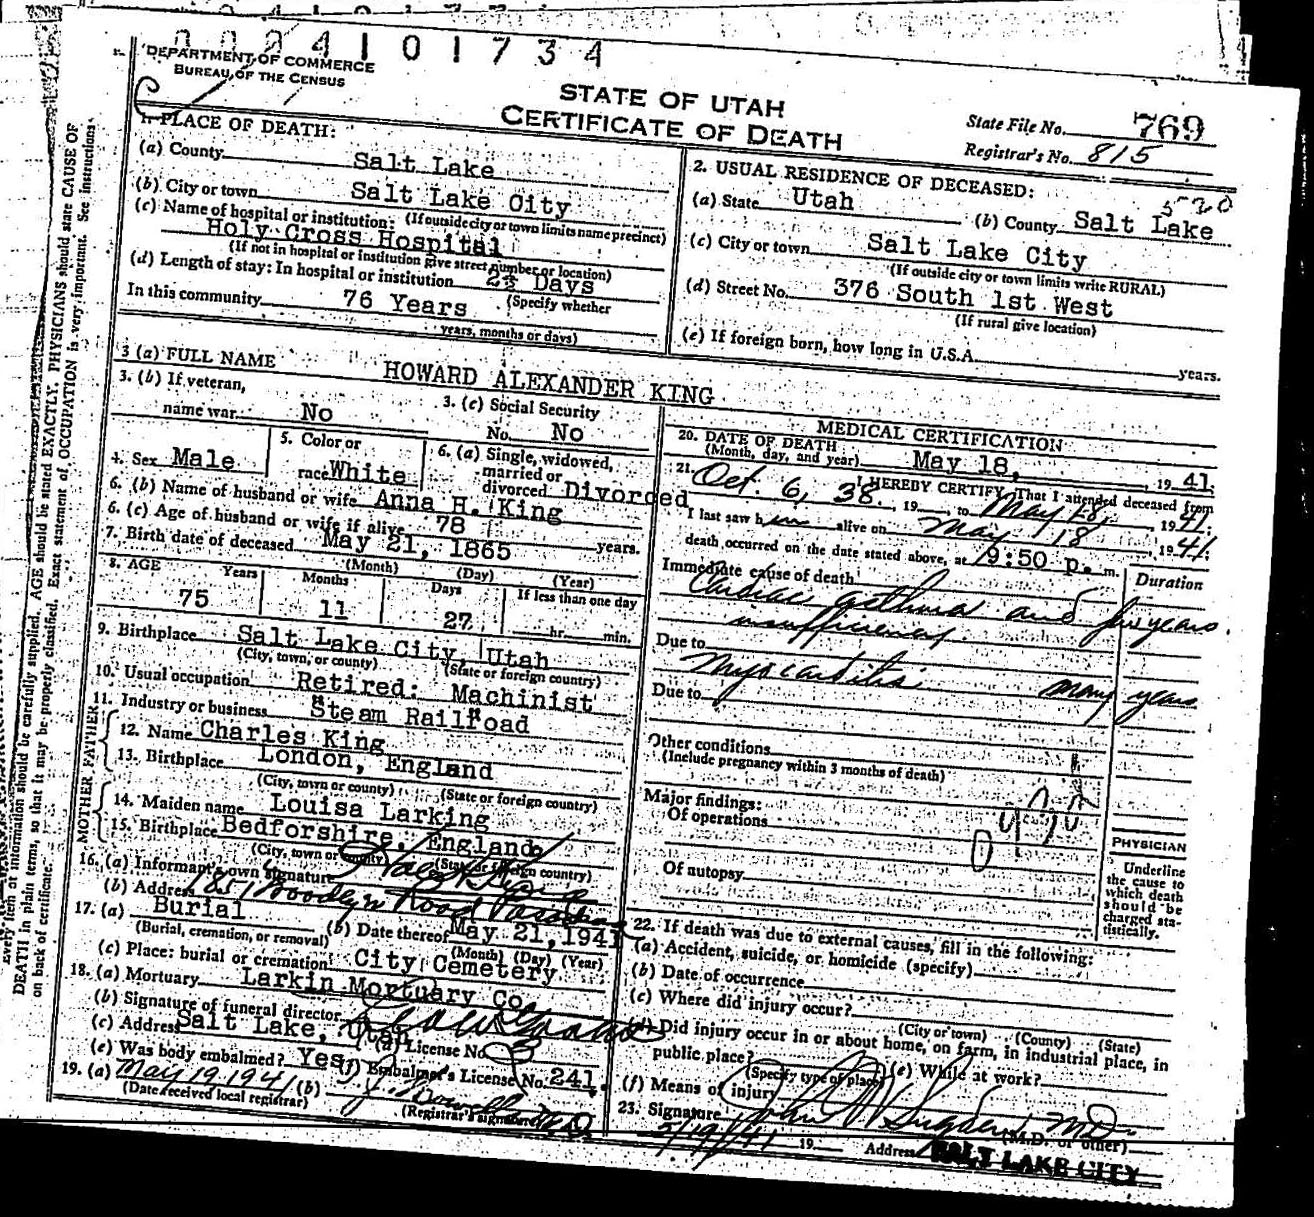 0 0 2 4 1 0 1 7 3 4
DEPARTMENT OF COMMERCE
BUREAU OF THE CENSUS
STATE OF UTAH
CERTIFICATE OF DEATH
State File No. 769
Registrar's No. 815
1. PLACE OF DEATH:
(a) County Salt Lake
(b) City or town Salt Lake City
(c) Name of hospital or institution: (If outside city or town limits name precinct)
Holy Cross Hospital
(If not in hospital or institution give street number or location)
(d) Length of stay: In hospital or institution 2½ Days
(Specify whether
In this community 76 Years
years, months or days)
2. USUAL RESIDENCE OF DECEASED:
(a) State Utah (b) County Salt Lake
(c) City or town Salt Lake City
(If outside city or town limits write RURAL)
(d) Street No. 376 South 1st West
(If rural give location)
(e) If foreign born, how long in U.S.A. years.
3 (a) FULL NAME HOWARD ALEXANDER KING
3. (b) If veteran,
name war No
3. (c) Social Security
No. No
4. Sex Male
5. Color or
race White
6. (a) Single, widowed,
married or
divorced Divorced
6. (b) Name of husband or wife Anna H. King
6. (c) Age of husband or wife if alive 78 years.
7. Birth date of deceased May 21, 1865
(Month) (Day) (Year)
8. AGE Years Months Days If less than one day
75 11 27 hr. min.
9. Birthplace Salt Lake City, Utah
(City, town, or county) (State or foreign country)
10. Usual occupation Retired: Machinist
11. Industry or business Steam Railroad
FATHER
12. Name Charles King
13. Birthplace London, England
(City, town or county) (State or foreign country)
MOTHER
14. Maiden name Louisa Larking
15. Birthplace Bedforshire, England
(City, town or county) (State or foreign country)
16. (a) Informant's own signature
(b) Address 1851 Woodlyn Road Pasadena
17. (a) Burial (b) Date thereof May 21, 1941
(Burial, cremation, or removal) (Month) (Day) (Year)
(c) Place: burial or cremation City Cemetery
18. (a) Mortuary Larkin Mortuary Co.
(b) Signature of funeral director
(c) Address Salt Lake, Utah (d) License No. 3
(e) Was body embalmed? Yes (f) Embalmer's License No. 241.
19. (a) May 19, 1941 (b)
(Date received local registrar) (Registrar's signature)
MEDICAL CERTIFICATION
20. DATE OF DEATH
(Month, day, and year) May 18, 1941.
21. I HEREBY CERTIFY, That I attended deceased from
Oct. 6, 38. 19 , to May 18, 1941.
I last saw him alive on May 18, 1941;
death occurred on the date stated above, at 9:50 p. m.
Immediate cause of death Duration
Cardiac asthma and few years.
insufficiency
Due to
Myocarditis many years
Due to
Other conditions
(Include pregnancy within 3 months of death)
Major findings:
Of operations
Of autopsy
PHYSICIAN
Underline
the cause to
which death
should be
charged sta-
tistically.
22. If death was due to external causes, fill in the following:
(a) Accident, suicide, or homicide (specify)
(b) Date of occurrence
(c) Where did injury occur?
(City or town) (County) (State)
(d) Did injury occur in or about home, on farm, in industrial place, in
public place?
(Specify type of place) (e) While at work?
(f) Means of injury
23. Signature John A Sugden M.D.
(M.D. or other)
5/19/41 19 Address SALT LAKE CITY
Every item of information should be carefully supplied. AGE should be stated EXACTLY. PHYSICIANS should state CAUSE OF
DEATH in plain terms, so that it may be properly classified. Exact statement of OCCUPATION is very important. See instructions
on back of certificate.